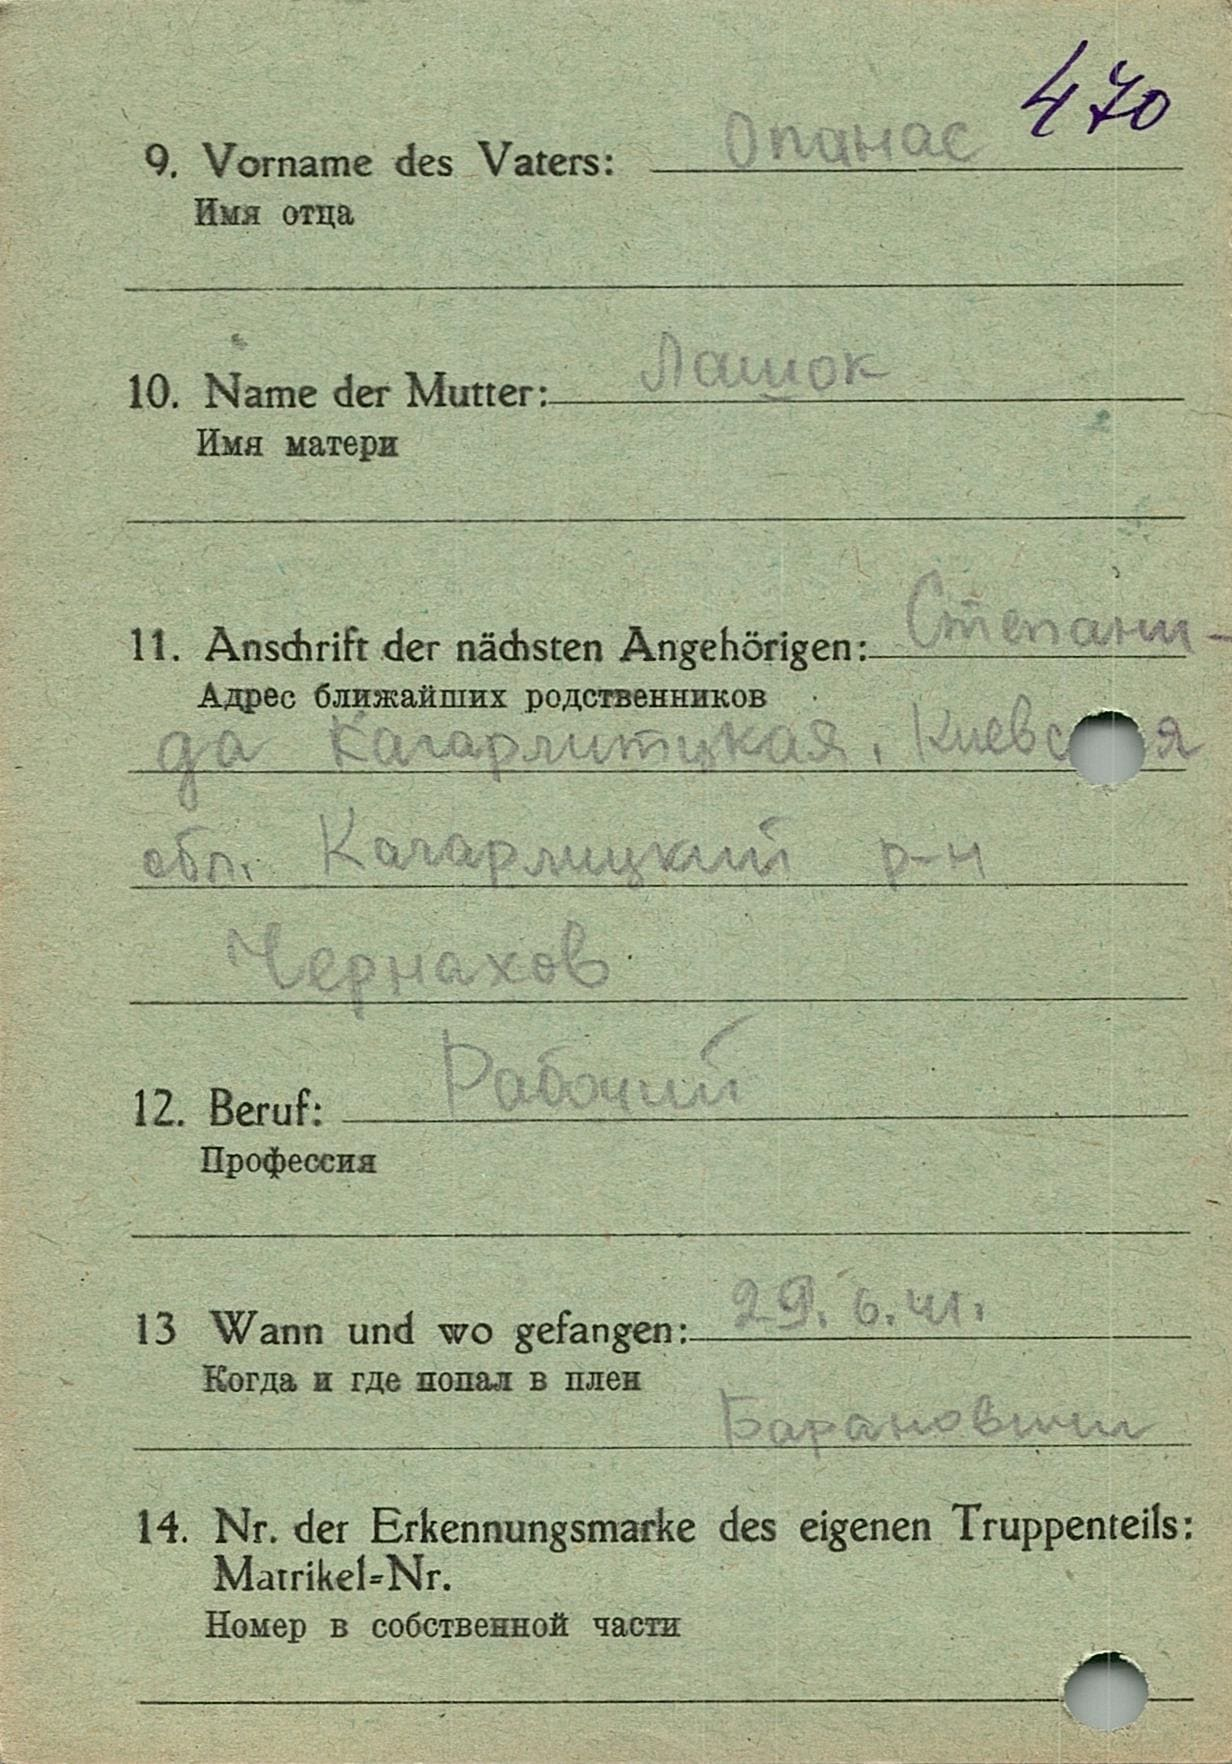 470
9. Vorname des Vaters: Опанас
Имя отца
10. Name der Mutter: Лашок
Имя матери
11. Anschrift der nächsten Angehörigen: Степани-
Адрес ближайших родственников
да Кагарлитцкая, Киевс я
обл. Кагарлицкий р-н
Чернахов
12. Beruf: Рабочий
Профессия
13 Wann und wo gefangen: 29. 6. 41.
Когда и где попал в плен
Барановичи
14. Nr. der Erkennungsmarke des eigenen Truppenteils:
Matrikel-Nr.
Номер в собственной части